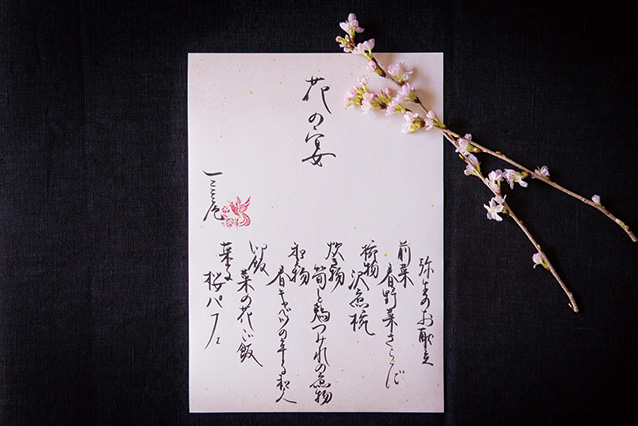 花の宴
一二三庵
弥生のお献立
前菜
春野菜さらだ
椀物
沢煮椀
炊き物
筍と鶏つみれの煮物
和物
春キャベツの辛子和え
ご飯
菜の花ご飯
菓子
桜パフェ